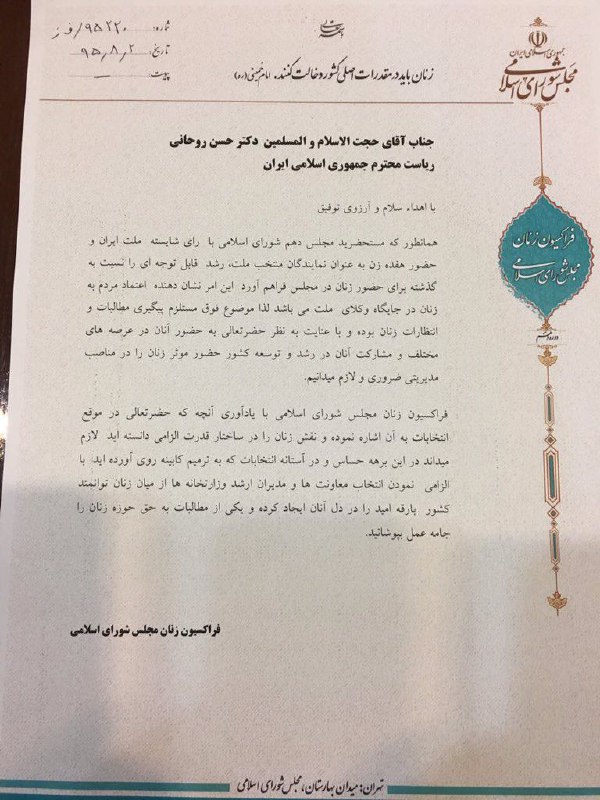 بسمه تعالی
شماره: ۹۵۲۲۰/ف ز
تاریخ: ۹۵,۸,۲
پیوست: —
زنان باید در مقدرات اصلی کشور دخالت کنند. امام خمینی (ره)
جمهوری اسلامی ایران
مجلس شورای اسلامی
فراکسیون زنان
مجلس شورای اسلامی
دوره دهم
جناب آقای حجت الاسلام و المسلمین دکتر حسن روحانی
ریاست محترم جمهوری اسلامی ایران
با اهداء سلام و آرزوی توفیق
همانطور که مستحضرید مجلس دهم شورای اسلامی با رای شایسته ملت ایران و
حضور هفده زن به عنوان نمایندگان منتخب ملت، رشد قابل توجه ای را نسبت به
گذشته برای حضور زنان در مجلس فراهم آورد این امر نشان دهنده اعتماد مردم به
زنان در جایگاه وکلای ملت می باشد لذا موضوع فوق مستلزم پیگیری مطالبات و
انتظارات زنان بوده و با عنایت به نظر حضرتعالی به حضور آنان در عرصه های
مختلف و مشارکت آنان در رشد و توسعه کشور حضور موثر زنان را در مناصب
مدیریتی ضروری و لازم میدانیم.
فراکسیون زنان مجلس شورای اسلامی با یادآوری آنچه که حضرتعالی در موقع
انتخابات به آن اشاره نموده و نقش زنان را در ساختار قدرت الزامی دانسته اید لازم
میداند در این برهه حساس و در آستانه انتخابات که به ترمیم کابینه روی آورده اید، با
الزامی نمودن انتخاب معاونت ها و مدیران ارشد وزارتخانه ها از میان زنان توانمند
کشور بارقه امید را در دل آنان ایجاد کرده و یکی از مطالبات به حق حوزه زنان را
جامه عمل بپوشانید.
فراکسیون زنان مجلس شورای اسلامی
تهران: میدان بهارستان، مجلس شورای اسلامی